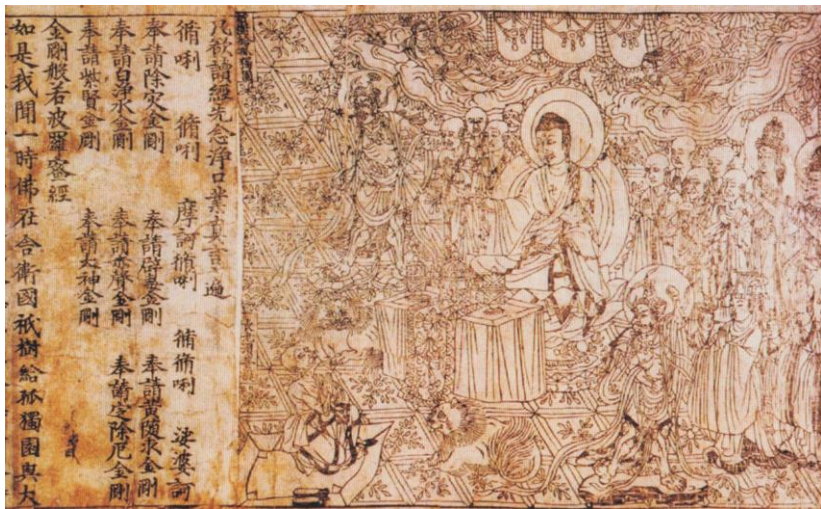 凡欲讀經先念淨口業真言一遍
脩唎 脩唎 摩訶脩唎 脩脩唎 娑婆訶
奉請除灾金剛 奉請辟毒金剛 奉請黄随求金剛
奉請白淨水金剛 奉請赤聲金剛 奉請定除厄金剛
奉請紫賢金剛 奉請大神金剛
金剛般若波羅蜜經
如是我聞一時佛在舍衛國祇樹給孤獨園與大